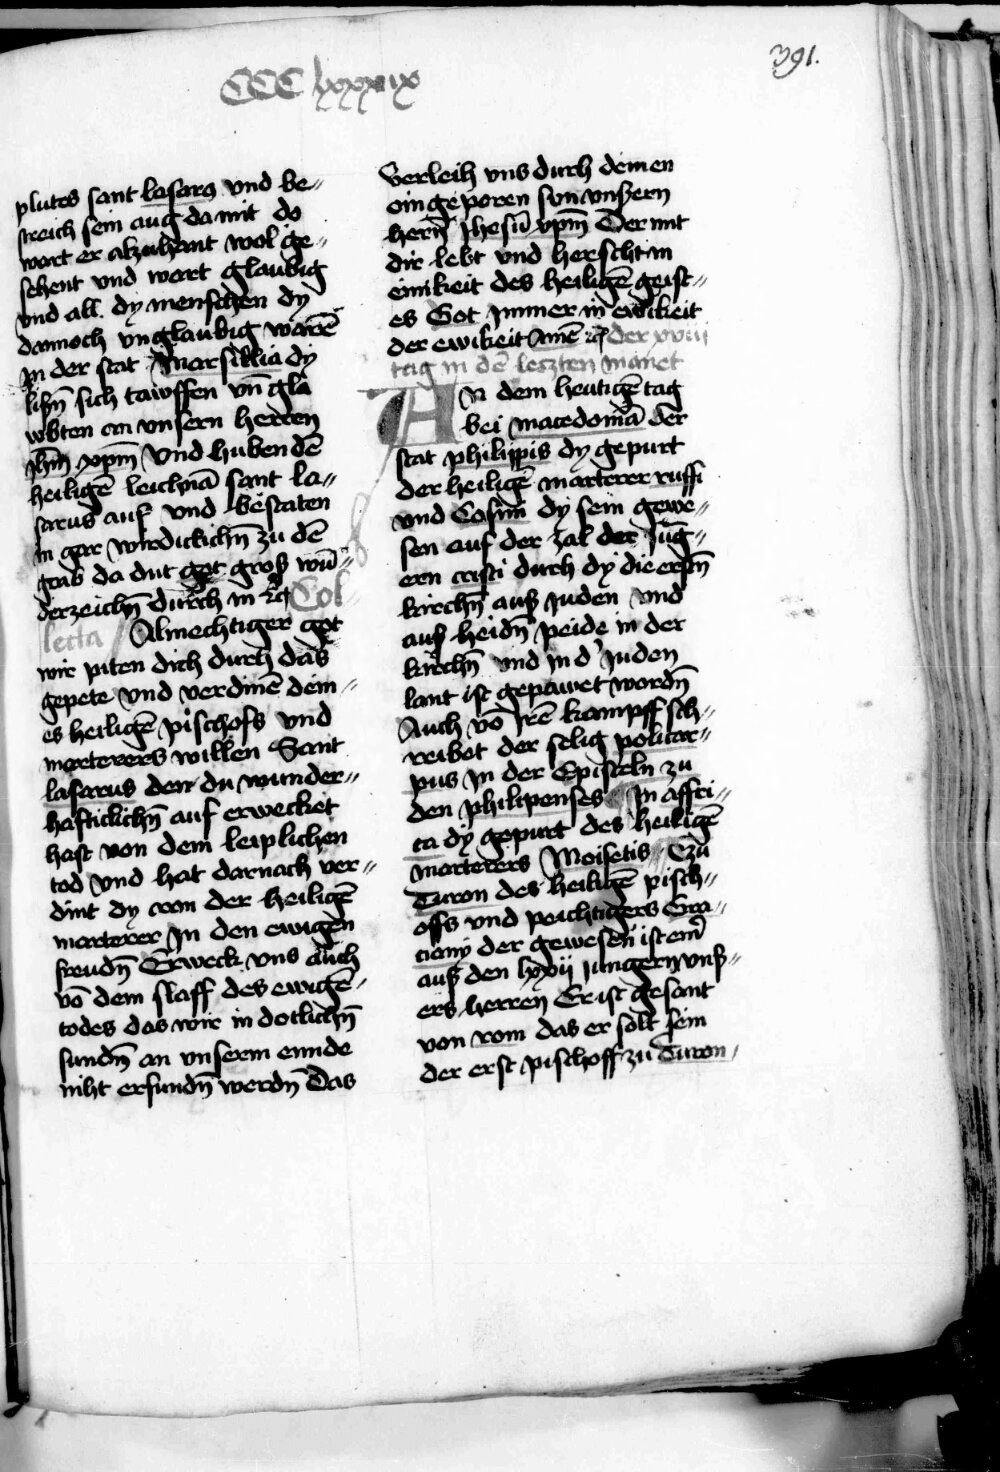 391.
CCC lxxxix
plutes sant lasarg vnd be„
streich sein aug da mit do
wart er alzuhant wol ge„
sehent vnd wart glaubig
vnd all. dy menschen dy
dannoch vnglaubig warē
jn der stat Marsillia dy
lisn̄ sich tawffen vn̄ glā
wbten an vnsern herren
Jhm̄ xpm̄ Vnd huben dē
heiligē leichnā sant la„
sarus auf vnd bestaten
in gar wirdiclichn̄ zu dē
grab da dut got groß wū„
derzeichn̄ durch in ꝛc Col
lecta Almechtiger got
wir piten dich durch das
gepete vnd verdinē dein„
es heiligē pischofs vnd
marterers willen Sant
lasarus den du wunder„
haftiklichn̄ auf erwecket
hast von dem leiplichen
tod Vnd hat darnach ver„
dint dy cron der heiligē
marterer Jn den ewigen
freudn̄ Erweck vns auch
vō dem slaff des ewigē„
todes das wir in dotlichn̄
sundn̄ an vnserm ennde
niht erfundn̄ werdn̄ Das
Verleih vns durch deinen
eingeporen sun vnßern
hern̄ Jhesū xpm̄ Der mit
dir lebt vnd herscht in
einikeit des heiligē geist„
es Got jmmer in ewikeit
der ewikeit Amē ꝛc der xviij
tag in dē leszten manet
An dem heutigē tag
bei macedoniā der
stat philippis dy gepurt
der heiligē marterer ruffi
vnd Cosimi dy sein gewe„
sen auf der zal der Jūg„
ern cristi durch dy die ersten̄
kirchn̄ auß Juden vnd
auß heidn̄ peide in der
kirchn̄ vnd in d' Juden
lant ist gepawet wordn̄
Auch vō Jrē kampff sch„
reibet der selig policar„
pus Jn der Episteln zu
den philipenses Jn affri„
ca dy gepurt des heiligē
marterers Moisetis Czu
Turon des heiligē pisch„
offs vnd peichtigers Gra„
ciany der gewesen ist ein̄
auß den lxxij jungern vnß„
ers herren Er ist gesant
von rom das er solt sein
der erst pischoff zu Turon,